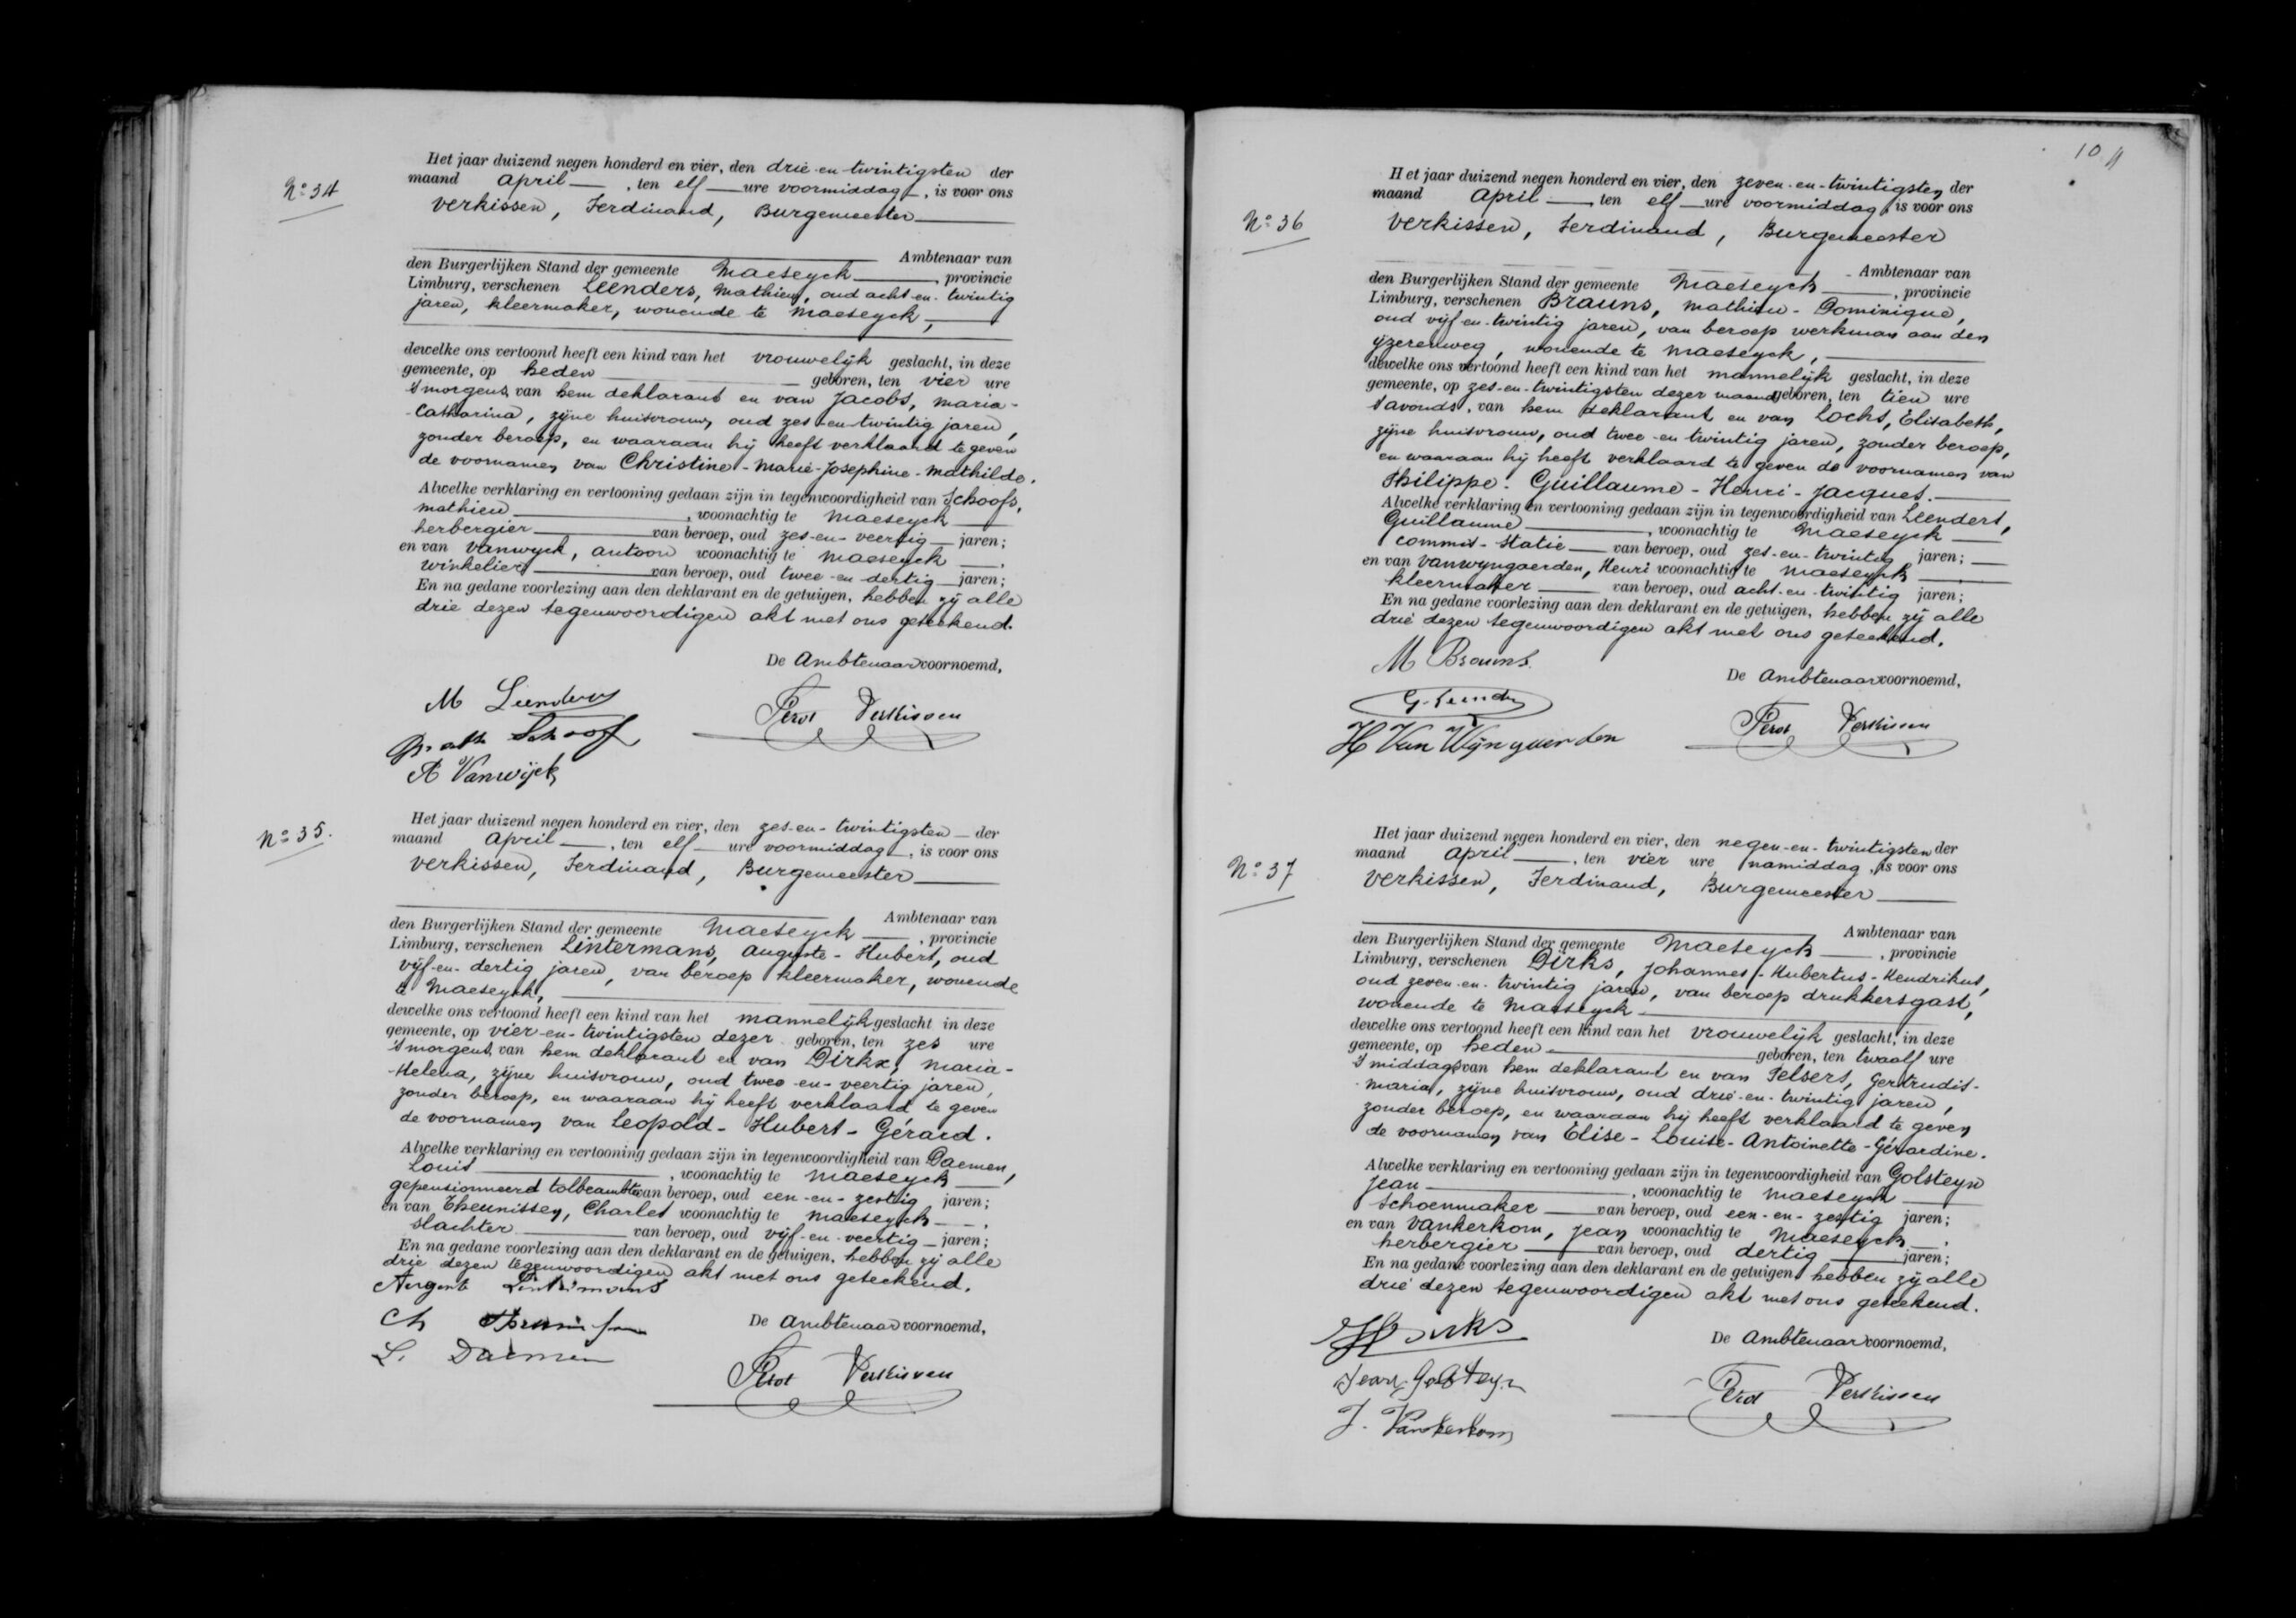 Nº 34
Het jaar duizend negen honderd en vier, den drie-en-twintigsten der
maand April, ten elf ure voormiddag, is voor ons
Verkissen, Ferdinand, Burgemeester
Ambtenaar van
den Burgerlijken Stand der gemeente Maeseyck, provincie
Limburg, verschenen Leenders, Mathieu, oud acht-en-twintig
jaren, kleermaker, wonende te Maeseyck,
dewelke ons vertoond heeft een kind van het vrouwelijk geslacht, in deze
gemeente, op heden geboren, ten vier ure
's morgens, van hem deklarant en van Jacobs, Maria-
-Catharina, zijne huisvrouw, oud zes-en-twintig jaren,
zonder beroep, en waaraan hij heeft verklaard te geven
de voornamen van Christine-Marie-Josephine-Mathilde.
Alwelke verklaring en vertooning gedaan zijn in tegenwoordigheid van Schoofs,
Mathieu, woonachtig te Maeseyck
herbergier van beroep, oud zes-en-veertig jaren;
en van Vanwyck, Antoon woonachtig te Maeseyck,
winkelier van beroep, oud twee-en-dertig jaren;
En na gedane voorlezing aan den deklarant en de getuigen, hebben zij alle
drie dezen tegenwoordigen akt met ons geteekend.
De Ambtenaar voornoemd,
M Leenders
Schoofs
A Vanwijck
Ferd Verkissen
Nº 35.
Het jaar duizend negen honderd en vier, den zes-en-twintigsten der
maand April, ten elf ure voormiddag, is voor ons
Verkissen, Ferdinand, Burgemeester
Ambtenaar van
den Burgerlijken Stand der gemeente Maeseyck, provincie
Limburg, verschenen Lintermans, Auguste-Hubert, oud
vijf-en-dertig jaren, van beroep kleermaker, wonende
te Maeseyck,
dewelke ons vertoond heeft een kind van het mannelijk geslacht in deze
gemeente, op vier-en-twintigsten dezer geboren, ten zes ure
's morgens, van hem deklarant en van Dirkx, Maria-
-Helena, zijne huisvrouw, oud twee-en-veertig jaren,
zonder beroep, en waaraan hij heeft verklaard te geven
de voornamen van Leopold-Hubert-Gérard.
Alwelke verklaring en vertooning gedaan zijn in tegenwoordigheid van Daemen,
Louis, woonachtig te Maeseyck
gepensionneerd tolbeambte van beroep, oud een-en-zestig jaren;
en van Theunissen, Charles woonachtig te Maeseyck,
slachter van beroep, oud vijf-en-veertig jaren;
En na gedane voorlezing aan den deklarant en de getuigen, hebben zij alle
drie dezen tegenwoordigen akt met ons geteekend.
Auguste Lintermans
Ch Theunissen
L. Daemen
De Ambtenaar voornoemd,
Ferd Verkissen
10
Nº 36
Het jaar duizend negen honderd en vier, den zeven-en-twintigsten der
maand April, ten elf ure voormiddag, is voor ons
Verkissen, Ferdinand, Burgemeester
Ambtenaar van
den Burgerlijken Stand der gemeente Maeseyck, provincie
Limburg, verschenen Brauns, Mathieu-Dominique,
oud vijf-en-twintig jaren, van beroep werkman aan den
ijzerenweg, wonende te Maeseyck,
dewelke ons vertoond heeft een kind van het mannelijk geslacht, in deze
gemeente, op zes-en-twintigsten dezer maand geboren, ten tien ure
's avonds, van hem deklarant en van Lochs, Elisabeth,
zijne huisvrouw, oud twee-en-twintig jaren, zonder beroep,
en waaraan hij heeft verklaard te geven de voornamen van
Philippe-Guillaume-Henri-Jacques.
Alwelke verklaring en vertooning gedaan zijn in tegenwoordigheid van Leenders,
Guillaume, woonachtig te Maeseyck
commis-statie van beroep, oud zes-en-twintig jaren;
en van Vanwyngaerden, Henri woonachtig te Maeseyck,
kleermaker van beroep, oud acht-en-twintig jaren;
En na gedane voorlezing aan den deklarant en de getuigen, hebben zij alle
drie dezen tegenwoordigen akt met ons geteekend.
M Brouns.
De Ambtenaar voornoemd,
G. Leenders
H Van Wijngaerden
Ferd Verkissen
Nº 37
Het jaar duizend negen honderd en vier, den negen-en-twintigsten der
maand April, ten vier ure namiddag, is voor ons
Verkissen, Ferdinand, Burgemeester
Ambtenaar van
den Burgerlijken Stand der gemeente Maeseyck, provincie
Limburg, verschenen Dirks, Johannes-Hubertus-Hendrikus,
oud zeven-en-twintig jaren, van beroep drukkersgast,
wonende te Maeseyck
dewelke ons vertoond heeft een kind van het vrouwelijk geslacht, in deze
gemeente, op heden geboren, ten twaalf ure
's middags van hem deklarant en van Pelsers, Gertrudis-
-Maria, zijne huisvrouw, oud drie-en-twintig jaren,
zonder beroep, en waaraan hij heeft verklaard te geven
de voornamen van Elise-Louise-Antoinette-Gérardine.
Alwelke verklaring en vertooning gedaan zijn in tegenwoordigheid van Golsteyn
Jean, woonachtig te Maeseyck
Schoenmaker van beroep, oud een-en-zestig jaren;
en van Vankerkom, Jean woonachtig te Maeseyck,
herbergier van beroep, oud dertig jaren;
En na gedane voorlezing aan den deklarant en de getuigen, hebben zij alle
drie dezen tegenwoordigen akt met ons geteekend.
Dirks
De Ambtenaar voornoemd,
Jean Golsteyn
J. Vankerkom
Ferd Verkissen